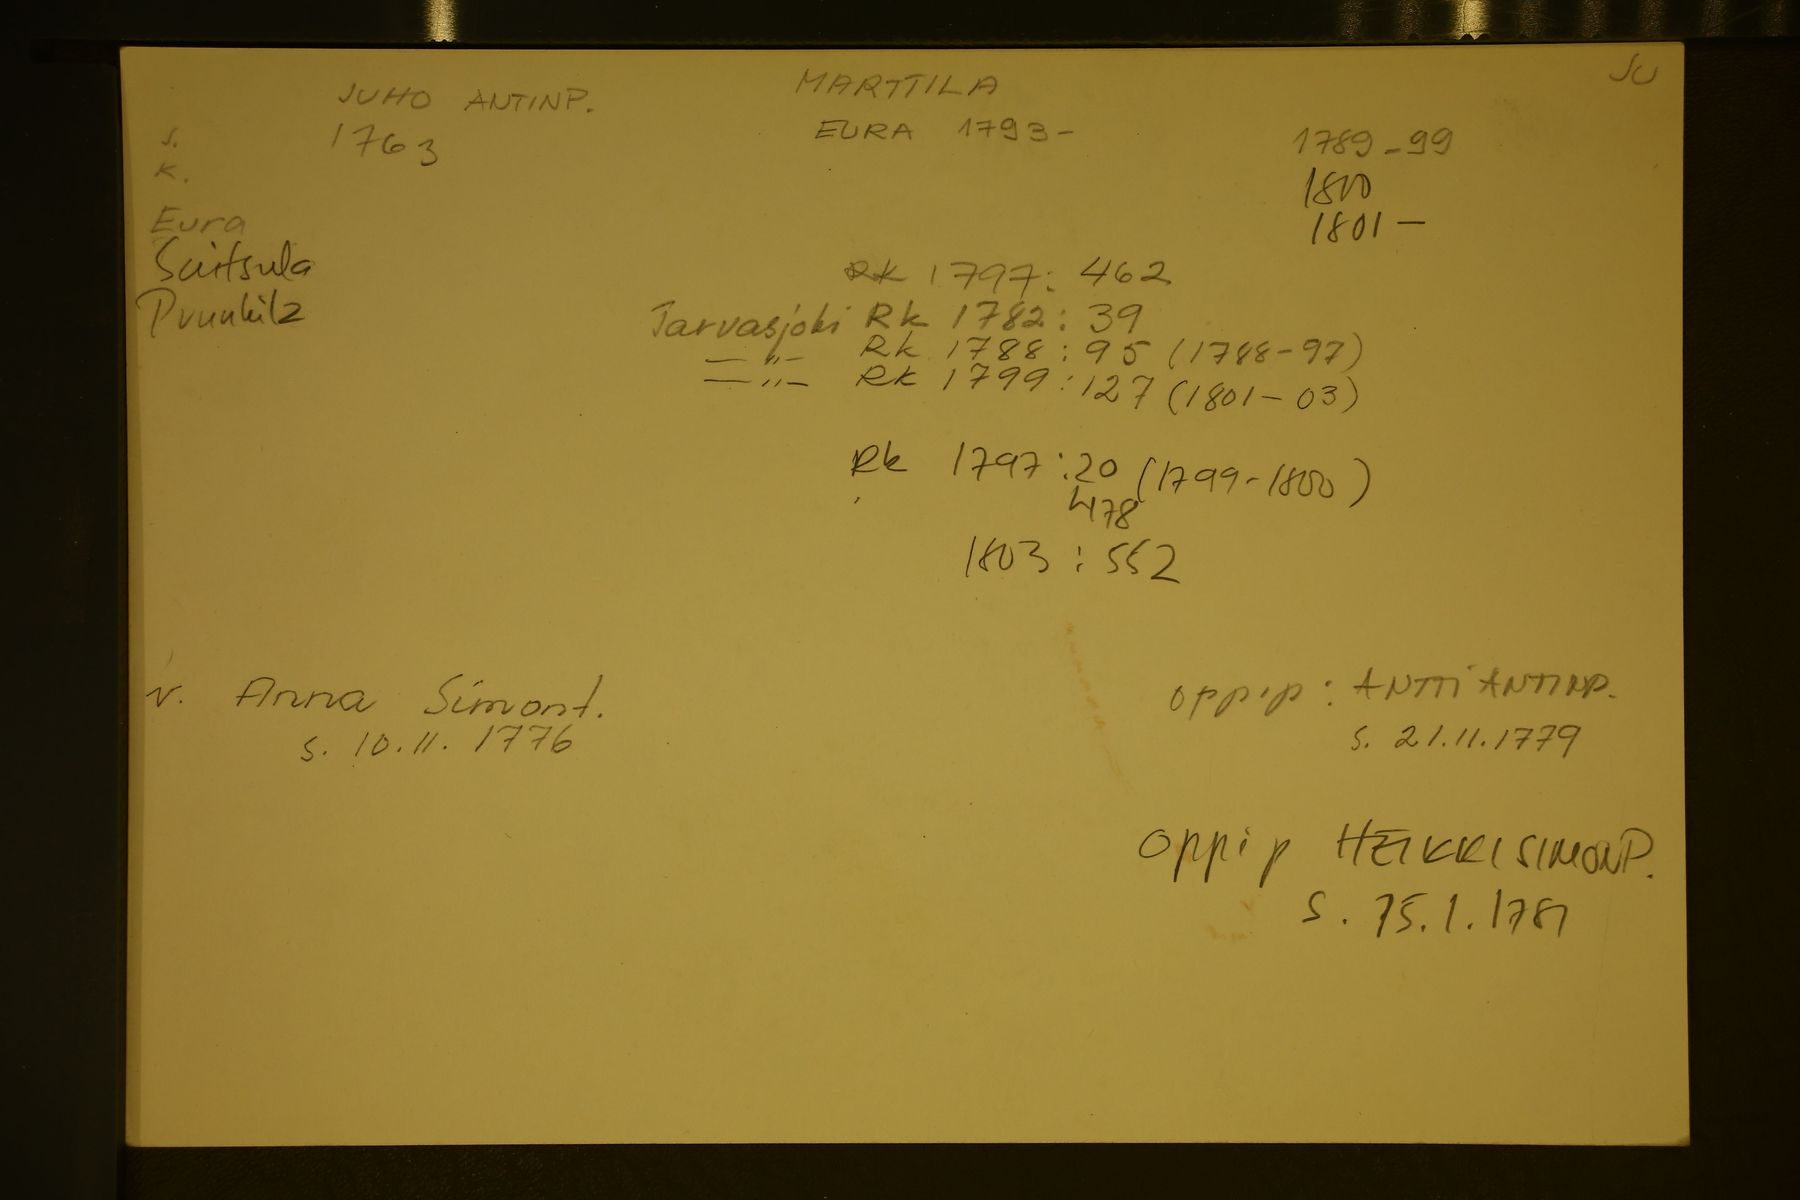 JU
JUHO ANTINP. MARTTILA
s. 1763 EURA 1793- 1789-99
k. 1800
Eura 1801-
Suitsula Rk 1797: 462
Tarvasjoki Rk 1782: 39
-"- Rk 1788: 95 (1788-97)
-"- Rk 1799: 127 (1801-03)
Rk 1797:20 (1799-1800)
478
1803: 552
v. Anna Simont. oppip: ANTTI ANTINP.
s. 10.11. 1776 s. 21.11.1779
oppip HEIKKI SIMONP.
s. 15.1.1781